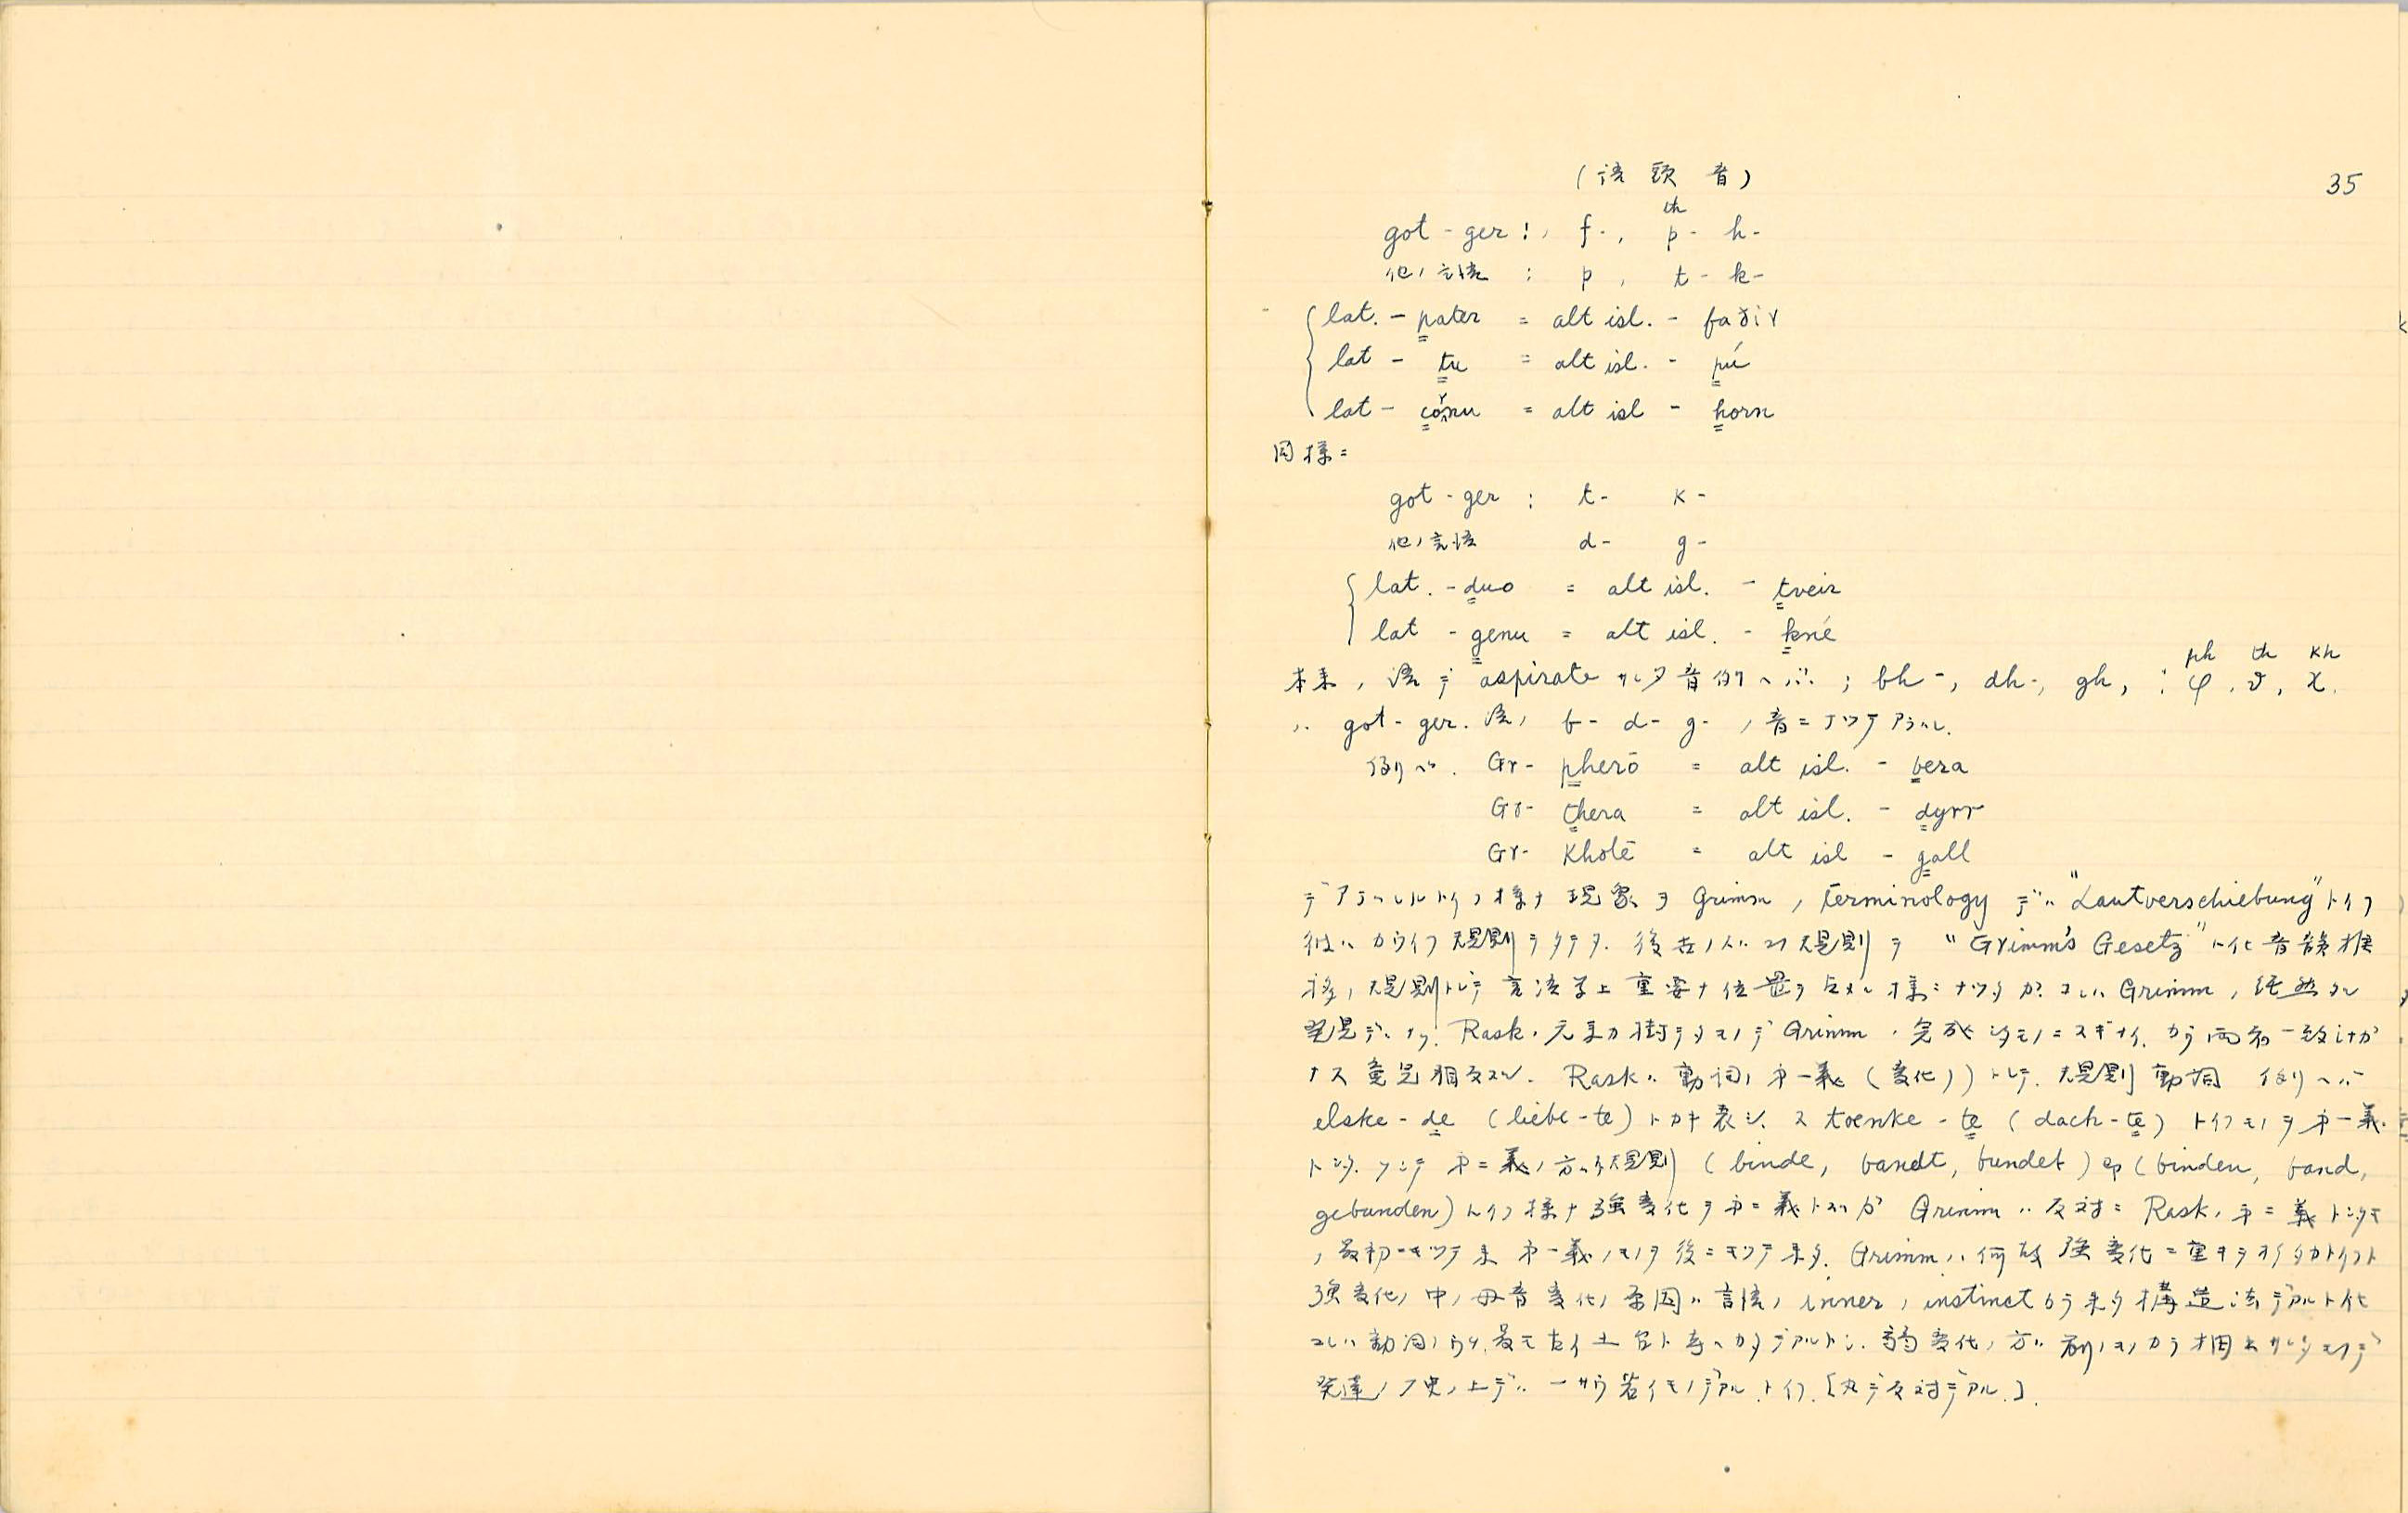 35
(語頭音)
th
got - ger : , f - , þ - h -
他ノ言語 : p , t - k -
lat. - pater = alt isl. - faðir
lat - tu = alt isl. - þú
lat - cornu = alt isl - horn
同様ニ
got - ger : t - k -
他ノ言語 d - g -
lat. - duo = alt isl. - tveir
lat - genu = alt isl. - kné
ph th kh
本来ノ語デ aspirate サレタ音例ヘバ ; bh -, dh -, gh, : φ, ϑ, χ.
ハ got - ger. 語ノ b - d - g - ノ音ニナツテアラハル.
例ヘバ. Gr - pherō = alt isl. - bera
Gr - thera = alt isl. - dyrr
Gr - Kholē = alt isl - gall
デアラハレルトイフ様ナ現象ヲ Grimm ノ terminology デハ "Lautverschiebung" トイフ
彼ハカウイフ規則ヲタテタ. 後世ノ人ハコノ規則ヲ "Grimm's Gesetz" 音韻推
移ノ規則トシテ言語学上重要ナ位置ヲ 様ニナツタガ コレハ Grimm ノ純然タル
発見デハナク. Rask ノ デ Grimm ノ完成シタモノニスギナイ. 両者一致
意見相反スル. Rask ハ動詞ノ第一義 (変化ノ) トシテ. 規則動詞 例ヘバ
elske - de (liebe - te) トカ 表シ. 又 toenke - te (dach - te) トイフモノヲ第一義
トシタ. ソシテ第二義ノ方ハ不規則 (binde, bandt, bundet) 即 (binden, band,
gebunden) トイフ様ナ強変化ヲ第二義トスルガ Grimm ハ反対ニ Rask ノ第二義トシタモ
ノ最初ニモツテ来 第一義ノモノヲ後ニモツテ来タ. Grimm ハ何故強変化ニ重キヲオイタカトイフト
強変化ノ中ノ母音変化ノ原因ハ言語ノ inner ノ instinct カラ来タ構造法デアルト
コレハ動詞ノウチ最モ古イ土台ト考ヘ デアルトシ. 弱変化ノ方ハ 別ノモノカラ モノデ
発達ノ歴史ノ上デハ 若イモノデアル. トイフ. [丸デ反対デアル.].